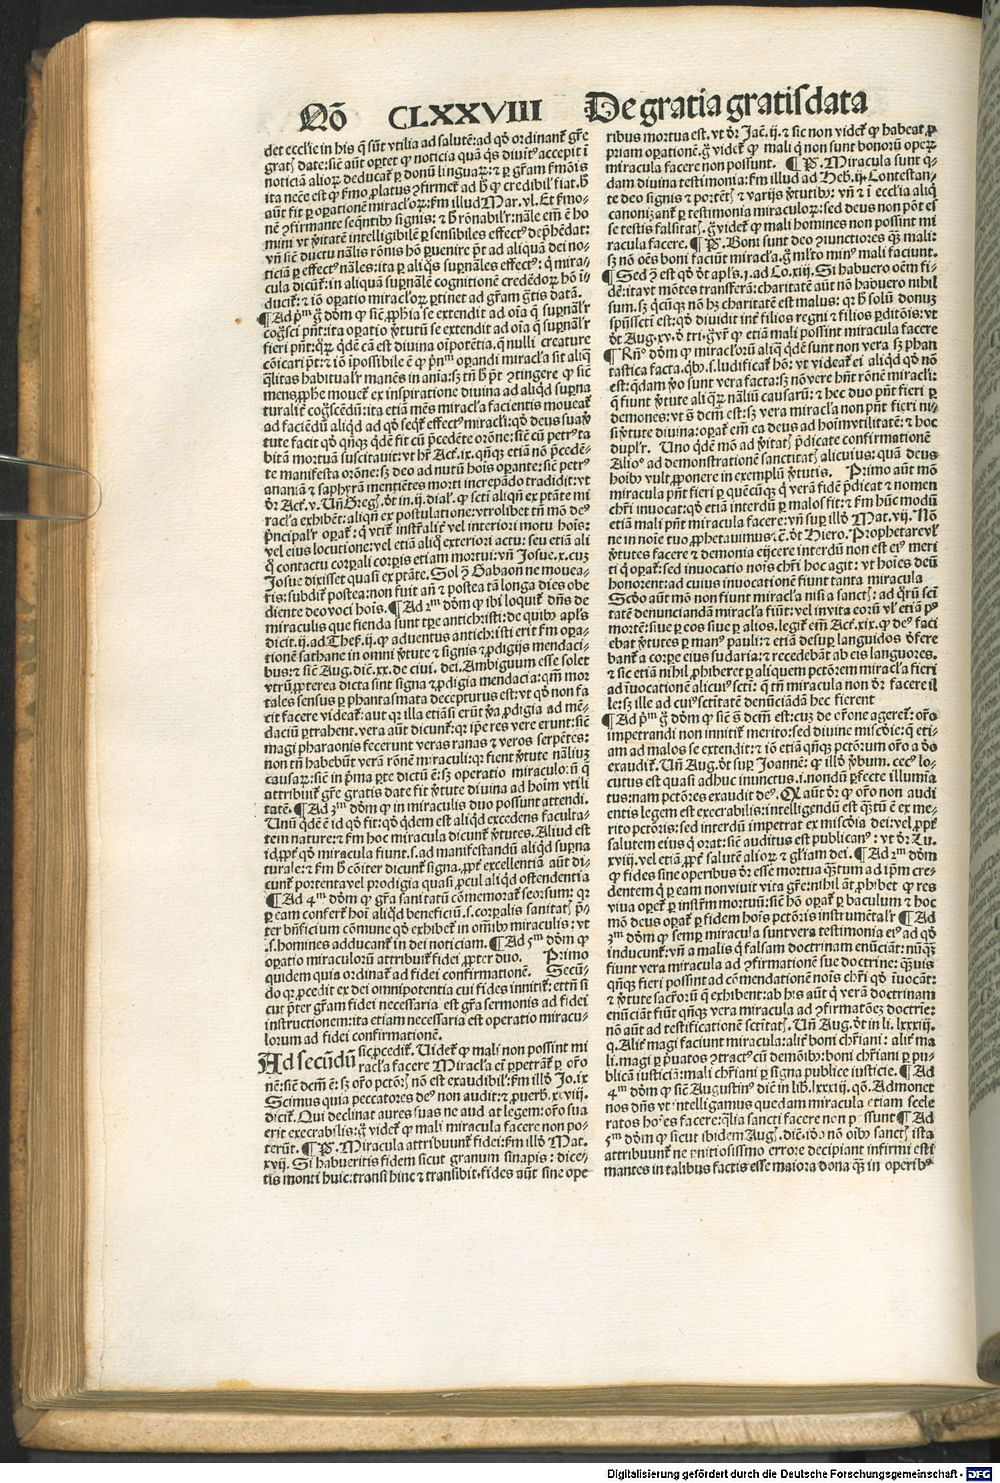 Qõ CLXXVIII De gratia gratis data
det ecclesie in his q̃ sũt vtilia ad salutẽ: ad qđ ordinant̃ gr̃e
gratꝭ date: sic̃ aũt oꝑtet ꝙ noticia quã q̃s diuitꝰ accepit ĩ
noticiã alioꝝ deducat̃ ꝑ donũ linguaꝝ: ⁊ ꝑ gr̃am ẜmõis
ita nec̃e est ꝙ ẜmo ꝓlatus ꝯfirmet̃ ad
aũt fit ꝑ oꝑationẽ miracĺoꝝ: ẜm illud Mar. vl. Et ẜmo-
nẽ ꝯfirmante seq̃ntibꝰ signis: ⁊ h̃ rõnabiĺr: nãle em̃ ẽ ho
mini vt ṽitatẽ intelligibilẽ ꝑ sensibiles effectꝰ dep̃hẽdat:
vñ sic̃ ductu nãlis rõnis hõ ꝑuenire põt ad aliquã dei no-
ticiã ꝑ effectꝰ nãles: ita ꝑ aliq̃s suꝑnãles effectꝰ: q̃ mira-
cula dicunt̃: in aliquã suꝑnãlẽ cognitionẽ credẽdoꝝ hõ ĩ-
ducit̃: ⁊ iõ oꝑatio miracĺoꝝ ꝑtinet ad gr̃am gr̃tis datã.
¶ Ad p̃mꝰ g̃ dõm ꝙ sic̃ ꝓph̃ia se extendit ad oĩa q̃ suꝑnãĺr
cog̃sci pñt: ita oꝑatio ṽtutũ se extendit ad oĩa q̃ suꝑnãĺr
fieri pñt: qꝝ qđẽ cã est diuina oĩpotẽtia, q̃ nulli creature
cõicari põt: ⁊ iõ ĩpossibile ẽ ꝙ p̃nᵐ oꝑandi miracĺa sit aliq̃
q̃litas habituaĺr manẽs in aĩa: sꝫ tñ h̃ põt ꝯtingere ꝙ sic̃
mens ꝓph̃e mouet̃ ex inspiratione diuina ad aliqđ suꝑna
turalit̃ cog̃scẽdũ: ita etiã mẽs miracĺa facientis moueat̃
ad faciẽdũ aliqđ ad qđ seq̃t̃ effectꝰ miracĺi: qđ deus sua ṽ
tute facit qđ qñqꝫ qđẽ fit cũ p̃cedẽte orõne: sic̃ cũ petrꝰ ta
bitã mortuã suscitauit: vt hr̃ Act̃. ix. qñqꝫ etiã nõ p̃cedẽ-
te manifesta orõne: sꝫ deo ad nutũ hoĩs oꝑante: sic̃ petrꝰ
ananiã ⁊ saphyrã mentiẽtes morti increpãdo tradidit: vt
dr̃ Act̃. v. Vñ Gregꝰ. dt̃ in .ij. dial̃. ꝙ sct̃i aliqñ ex ptãte mi
racĺa exhibẽt: aliqñ ex postulatione: vtrolibet tñ mõ deꝰ
p̃ncipaĺr oꝑat̃: q̃ vtit̃ instr̃aĺit̃ vel interiori motu hoĩs:
vel eius locutione: vel etiã aliq̃ exteriori actu: seu etiã ali
q̃ contactu corꝑali corꝑis etiam mortui: vñ Josue. x. cuꝫ
Josue dixisset quasi ex ptãte. Sol ꝯ̃ Gabaon ne mouea-
ris: subdit̃ postea: non fuit añ ⁊ postea tã longa dies obe
diente deo voci hoĩs. ¶ Ad 2ᵐ dõm ꝙ ibi loquit̃ dñs de
miraculis que fienda sunt tp̃e antichristi: de quibꝰ apĺs
dicit. ij. ad Thes̃. ij. ꝙ aduentus antichristi erit ẜm oꝑa-
tionẽ sathane in omni ṽtute ⁊ signis ⁊ ꝓdigijs mendaci-
bus: ⁊ sic̃ Aug. dic̃. xx. de ciui. dei. Ambiguum esse solet
vtrũ ꝓpterea dicta sint signa ⁊ ꝓdigia mendacia: qm̃ mor
tales sensus ꝑ phantasmata decepturus est: vt qđ non fa
cit facere videat̃: aut qꝛ illa etiã si erũt ṽa ꝓdigia ad mẽ-
daciũ ꝑtrahent. vera aũt dicunt̃: qꝛ ip̃e res vere erunt: sic̃
magi pharaonis fecerunt veras ranas ⁊ veros serpẽtes:
non tñ habebũt verã rõnẽ miraculi: qꝛ fient ṽtute nãliuꝫ
causaꝝ: sic̃ in p̃ma ꝑte dictũ ẽ: sꝫ operatio miraculoꝝ q̃
attribuit̃ gr̃e gratis date fit ṽtute diuina ad hoĩm vtili
tatẽ. ¶ Ad 3ᵐ dõm ꝙ in miraculis duo possunt attendi.
Unũ qđẽ ẽ id qđ fit: qđ qđem est aliqđ excedens faculta-
tem nature: ⁊ ẜm hoc miracula dicunt̃ ṽtutes. Aliud est
id ꝓpt̃ qđ miracula fiunt. s. ad manifestandũ aliqđ suꝑna
turale: ⁊ ẜm h̃ cõiter dicunt̃ signa. ꝓpt̃ excellentiã aũt di-
cunt̃ portenta vel prodigia quasi ꝓcul aliqđ ostendentia
¶ Ad 4ᵐ dõm ꝙ gr̃a sanitatũ cõmemorat̃ seorsum: qꝛ
ꝑ eam confert̃ hoĩ aliqđ beneficiũ. s. corꝑalis sanitatꝭ p̃-
ter bñficium cõmune qđ exhibet̃ in omĩbꝰ miraculis: vt
.s. homines adducant̃ in dei noticiam. ¶ Ad 5ᵐ dõm ꝙ
oꝑatio miraculorũ attribuit̃ fidei ꝓpter duo. Primo
quidem quia ordinat̃ ad fidei confirmationẽ. Secũ-
do qꝛ ꝓcedit ex dei omnipotentia cui fides innitit̃: et tñ si
cut p̃ter gr̃am fidei necessaria est gr̃a sermonis ad fidei
instructionem: ita etiam necessaria est operatio miracu-
lorum ad fidei confirmationẽ.
Ad secũdũ sic ꝓcedit̃. Uidet̃ ꝙ mali non possint mi
racĺa facere Miracĺa em̃ ꝑpetrãt̃ ꝑ orõ
nẽ: sic̃ dcm̃ ẽ: sꝫ orõ pctõrꝭ nõ est exaudibiĺ: ẜm illđ Jo. ix
Scimus quia peccatores deꝰ non audit: ⁊ ꝓuerb̃. xxviij.
dicit̃. Qui declinat aures suas ne audiat legem: orõ sua
erit execrabilis: g̃ videt̃ ꝙ mali miracula facere non po-
terũt. ¶ P̃. Miracula attribuunt̃ fidei: ẜm illđ Mat.
xvij. Si habueritis fidem sicut granum sinapis: dice-
tis monti huic: transi hinc ⁊ transibit. fides aũt sine ope
ribus mortua est. vt dr̃ Jac̃. ij. ⁊ sic non videt̃ ꝙ habeat ꝓ
priam oꝑationẽ. g̃ videt̃ ꝙ mali q̃ non sunt bonorũ opeꝝ
miracula facere non possunt. ¶ P̃. Miracula sunt q̃-
dam diuina testimonia: ẜm illud ad Heb̃. ij. Contestan-
te deo signis ⁊ portẽtꝭ ⁊ varijs ṽtutibꝰ: vñ ⁊ ĩ ecclĩa aliq̃
canonizant̃ ꝑ testimonia miraculoꝝ: sed deus non põt es
se testis falsitatꝭ. g̃ videt̃ ꝙ mali homines non possint mi
racula facere. ¶ P̃. Boni sunt deo ꝯiunctiores qꝫ mali:
sꝫ nõ oẽs boni faciũt miracĺa. g̃ mĺto minꝰ mali faciunt.
¶ Sed ꝯ̃ est qđ dt̃ apĺs. j. ad Co. xiij. Si habuero oẽm fi-
dẽ: ita vt mõtes transferã: charitatẽ aũt nõ habuero nihil
sum. sꝫ q̃cũqꝫ nõ hꝫ charitatẽ est malus: qꝛ h̃ solũ donuꝫ
spũssc̃ti est: qđ diuidit int̃ filios regni ⁊ filios ꝑditõis: vt
dt̃ Aug. xv. đ tri. g̃ vr̃ ꝙ etiã mali possint miracula facere
¶ Rñ. dõm ꝙ miracĺorũ aliq̃ qđẽ sunt non vera sꝫ phan
tastica facta. qbꝰ. s. ludificat̃ hõ: vt videat̃ ei aliqđ qđ nõ
est: q̃dam ṽo sunt vera facta: sꝫ nõ vere hñt rõnẽ miracĺi:
q̃ fiunt ṽtute aliqꝝ nãliũ causarũ: ⁊ hec duo pñt fieri ꝑ
demones: vt s̃ dcm̃ est: sꝫ vera miracĺa non pñt fieri ni-
si ṽtute diuina: oꝑat̃ em̃ ea deus ad hoĩm vtilitatẽ: ⁊ hoc
dupĺr. Uno qđẽ mõ ad ṽitatꝭ p̃dicate confirmationẽ
Alioˢ ad demonstrationẽ sanctitatꝭ alicuius: quã deus
hoĩbꝰ vult ꝓponere in exemplũ ṽtutis. Primo aũt mõ
miracula pñt fieri ꝑ quẽcũqꝫ q̃ verã fidẽ p̃dicat ⁊ nomen
chr̃i inuocat: qđ etiã interdũ ꝑ malos fit: ⁊ ẜm hũc modũ
etiã mali pñt miracula facere: vñ suꝑ illđ Mat. vij. Nõ
ne in noĩe tuo ꝓphetauimus. ⁊c̃. dt̃ Hiero. Prophetare vĺ
ṽtutes facere ⁊ demonia eijcere interdũ non est eiꝰ meri
ti q̃ oꝑat̃: sed inuocatio noĩs chr̃i hoc agit: vt hoĩes deũ
honorent: ad cuius inuocationẽ fiunt tanta miracula
Scđo aũt mõ non fiunt miracĺa nisi a sanctꝭ: ad qrũ sc̃i
tatẽ denunciandã miracĺa fiũt: vel in vita eorũ vĺ etiã pꝰ
mortẽ: siue ꝑ eos siue ꝑ alios. legit̃ em̃ Act̃. xix. ꝙ deꝰ faci
ebat ṽtutes ꝑ manꝰ pauli: ⁊ etiã desuꝑ languidos dẽfere
bant̃ a corꝑe eius sudaria: ⁊ recedebãt ab eis languores.
⁊ sic etiã nihil ꝓhiberet ꝑ aliquem pctõrem miracĺa fieri
ad ĩuocationẽ alicuiꝰ sct̃i: q̃ tñ miracula non dr̃ facere il
le: sꝫ ille ad cuiꝰ sct̃itatẽ denũciãdã hec fierent
¶ Ad p̃mꝰ g̃ dõm ꝙ sic̃ s̃ dcm̃ est: cuꝫ de orõne ageret̃: orõ
impetrandi non innitit̃ merito: sed diuine misc̃die: q̃ eti-
am ad malos se extendit: ⁊ iõ etiã qñqꝫ pctõrum orõ a dõ
exaudit̃. Uñ Aug. dt̃ suꝑ Joannẽ: ꝙ illđ ṽbum. cec̃ꝰ lo-
cutus est quasi adhuc inunctus. i. nondũ ꝑfecte illumĩa
tus: nam pctõres exaudit deꝰ. Qđ aũt dr̃ ꝙ orõ non audi
entis legem est execrabilis: intelligendũ est qꝫtũ ẽ ex me-
rito pctõris: sed interdũ impetrat ex misc̃dia dei: vel ꝓpt̃
salutem eius q̃ orat: sic̃ auditus est publicanꝰ: vt dr̃ Lu.
xviij. vel etiã ꝓpt̃ salutẽ alioꝝ ⁊ gĺiam dei. ¶ Ad 2ᵐ dõm
ꝙ fides sine operibus dr̃ esse mortua qꝫtum ad ip̃m cre-
dentem q̃ ꝑ eam non viuit vita gr̃e: nihil aũt ꝓhibet ꝙ res
viua oꝑet̃ ꝑ instr̃m mortuũ: sic̃ hõ oꝑat̃ ꝑ baculum ⁊ hoc
mõ deus oꝑat̃ ꝑ fidem hoĩs pctõris instrumẽtaĺr ¶ Ad
3ᵐ dõm ꝙ semꝑ miracula sunt vera testimonia eiꝰ ad qđ
inducunt̃: vñ a malis q̃ falsam doctrinam enũciãt: nũqꝫ
fiunt vera miracula ad ꝯfirmationẽ sue doctrine: qꝫuis
qñqꝫ fieri possint ad cõmendationẽ noĩs chr̃i qđ ĩuocãt:
⁊ ṽtute sacr̃orũ q̃ exhibent: ab his aũt q̃ verã doctrinam
enũciãt fiũt qñqꝫ vera miracula ad ꝯfirmatõeꝫ doctrĩe:
nõ aũt ad testificationẽ sctĩtatꝭ. Uñ Aug. dt̃ in li. lxxxiij.
q̃. Alit̃ magi faciunt miracula: alit̃ boni chr̃iani: alit̃ ma
li. magi ꝑ p̃uatos ꝯtractꝰ cũ demõibꝰ: boni chr̃iani ꝑ pu-
blicã iusticiã: mali chr̃iani ꝑ signa publice iusticie. ¶ Ad
4ᵐ dõm ꝙ sic̃ Augustinꝰ dic̃ in lib̃. lxxxiij. qõ. Admonet
nos dñs vt intelligamus quedam miracula etiam scele
ratos hoĩes facere: q̃lia sancti facere non possunt ¶ Ad
5ᵐ dõm ꝙ sicut ibidem Augꝰ. dic̃. iđo nõ oĩbꝰ sanctꝭ ista
attribuunt̃ ne ꝑnitiosissimo errore decipiant̃ infirmi esti
mantes in talibus factis esse maiora dona qꝫ in operibꝰ
Digitalisierung gefördert durch die Deutsche Forschungsgemeinschaft - DFG